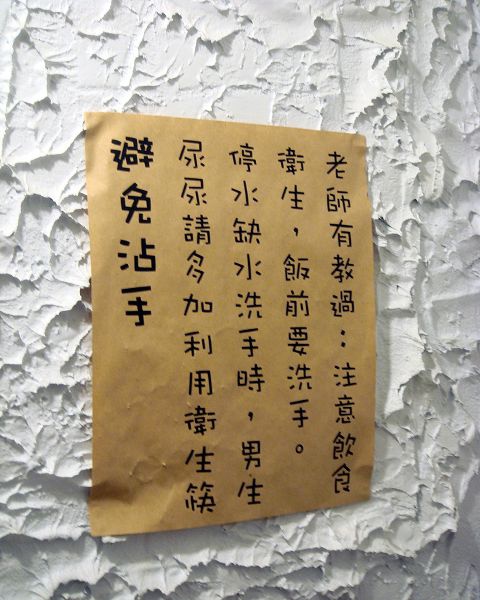 老師有教過：注意飲食
衛生，飯前要洗手。
停水缺水洗手時，男生
尿尿請多加利用衛生筷
避免沾手